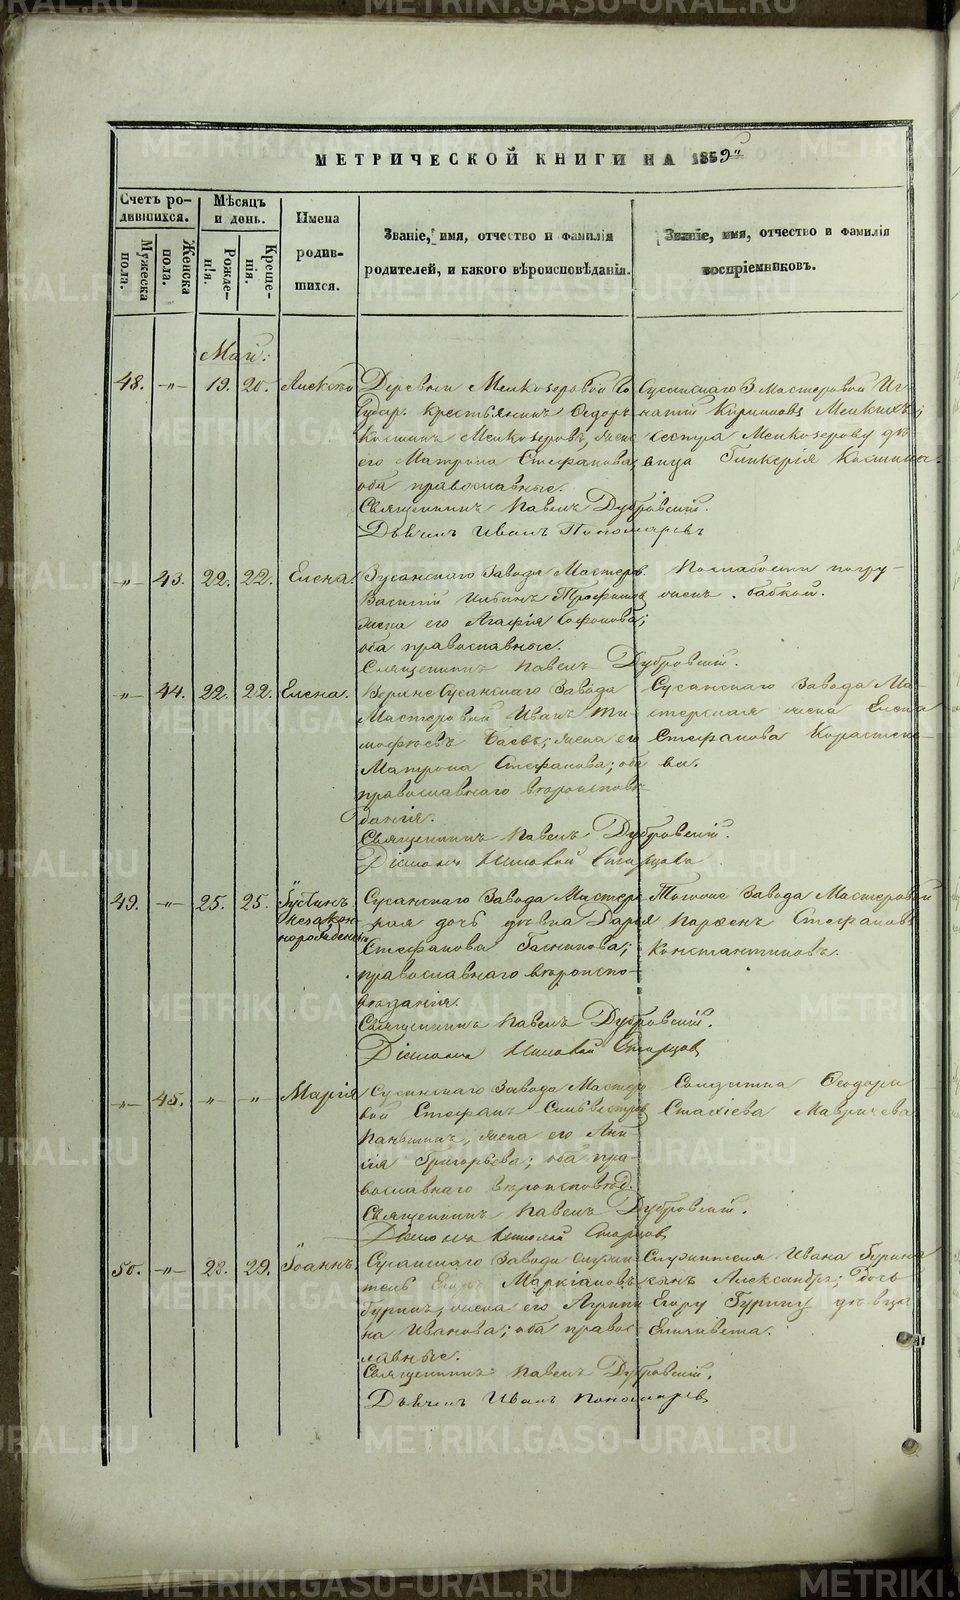 МЕТРИЧЕСКОЙ КНИГИ НА 1859й
Счетъ ро-
дившихся.
Мѣсяцъ
и день.
Имена
родив-
шихся.
Званіе, имя, отчество и фамилія
родителей, и какого вѣроисповѣданія.
Званіе, имя, отчество и фамилія
воспріемниковъ.
Мужеска
пола.
Женска
пола.
Рожде-
нія.
Креще-
нія.
Май:
48. -"- 19. 20. Алексѣй
Деревни Мелкозеровой Го
судар. Крестьянинъ Ѳедоръ
Козминъ Мелкозеровъ, жена
его Матрона Стефанова;
оба православные.
Священникъ Павелъ Дубровскій.
Дьячекъ Иванъ Пономаревъ
Сусанскаго З. Мастеровой Иг-
натій Кириловъ
сестра Мелкозерову дѣ-
вица Гликерія Козмина.
-"- 43. 22. 22. Елена.
Сусанскаго Завода Мастеров.
Василій Ильинъ Трофимов
жена его Агафія Софонова;
оба православные.
Священникъ Павелъ Дубровскій.
По слабости погру-
жена бабкой.
-"- 44. 22. 22. Елена.
Верхне Сусанскаго Завода
Мастеровой Иванъ Ти-
мофѣевъ жена его
Матрона Стефанова; оба
православнаго вѣроисповѣ-
данія.
Священникъ Павелъ Дубровскій.
Діаконъ Николай Старцовъ
Сусанскаго Завода Ма-
стерская жена Елена
Стефанова Коростеле-
ва.
49. -"- 25. 25. Іустинъ
незакон-
норожденъ
Сусанскаго Завода Мастер-
ская дочь дѣвка Дарья
Стефанова
православнаго вѣроиспо-
вѣданія.
Священникъ Павелъ Дубровскій.
Діаконъ Николай Старцовъ
Тогоже Завода Мастеровой
Парѳенъ Стефановъ
Константиновъ.
-"- 45. -"- -"- Марія
Сусанскаго Завода Мастеро
вой Стефанъ Сильвестров
Паньшинъ, жена его Ани-
сія Григорьева; оба пра-
вославнаго вѣроисповѣд.
Священникъ Павелъ Дубровскій.
Діаконъ Николай Старцов
Солдатка Ѳеодора
Стахіева Мавричева
50. -"- 28. 29. Іоаннъ.
Сусанскаго Завода служи-
тель Егоръ Маркіановъ
Гуринъ, жена его Агрипи
на Иванова; оба правос-
лавные.
Священникъ Павелъ Дубровскій.
Дьячекъ Иванъ Пономаревъ
Служителя Ивана Гурина
сынъ Александръ; дочь
Егору Гурину дѣвица
Елисавета.
METRIKI.GASO-URAL.RU